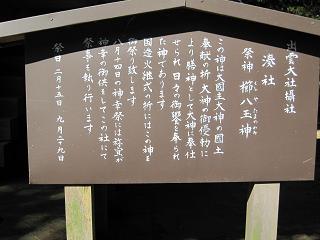 出雲大社攝社
湊社
祭神 櫛八玉神
くしやたまのかみ
この神は大國主大神の國土
奉献の折 大神の御優待に
より膳神として大神に奉仕
せられ 日々の御饗を奉られ
た神であります
國造火継式の折にはこの神を
御祭り致します
八月十四日の神幸祭には祢宜が
神幸の御供をしてこの社にて
祭事を執り行います
祭日 二月二十五日 九月二十九日